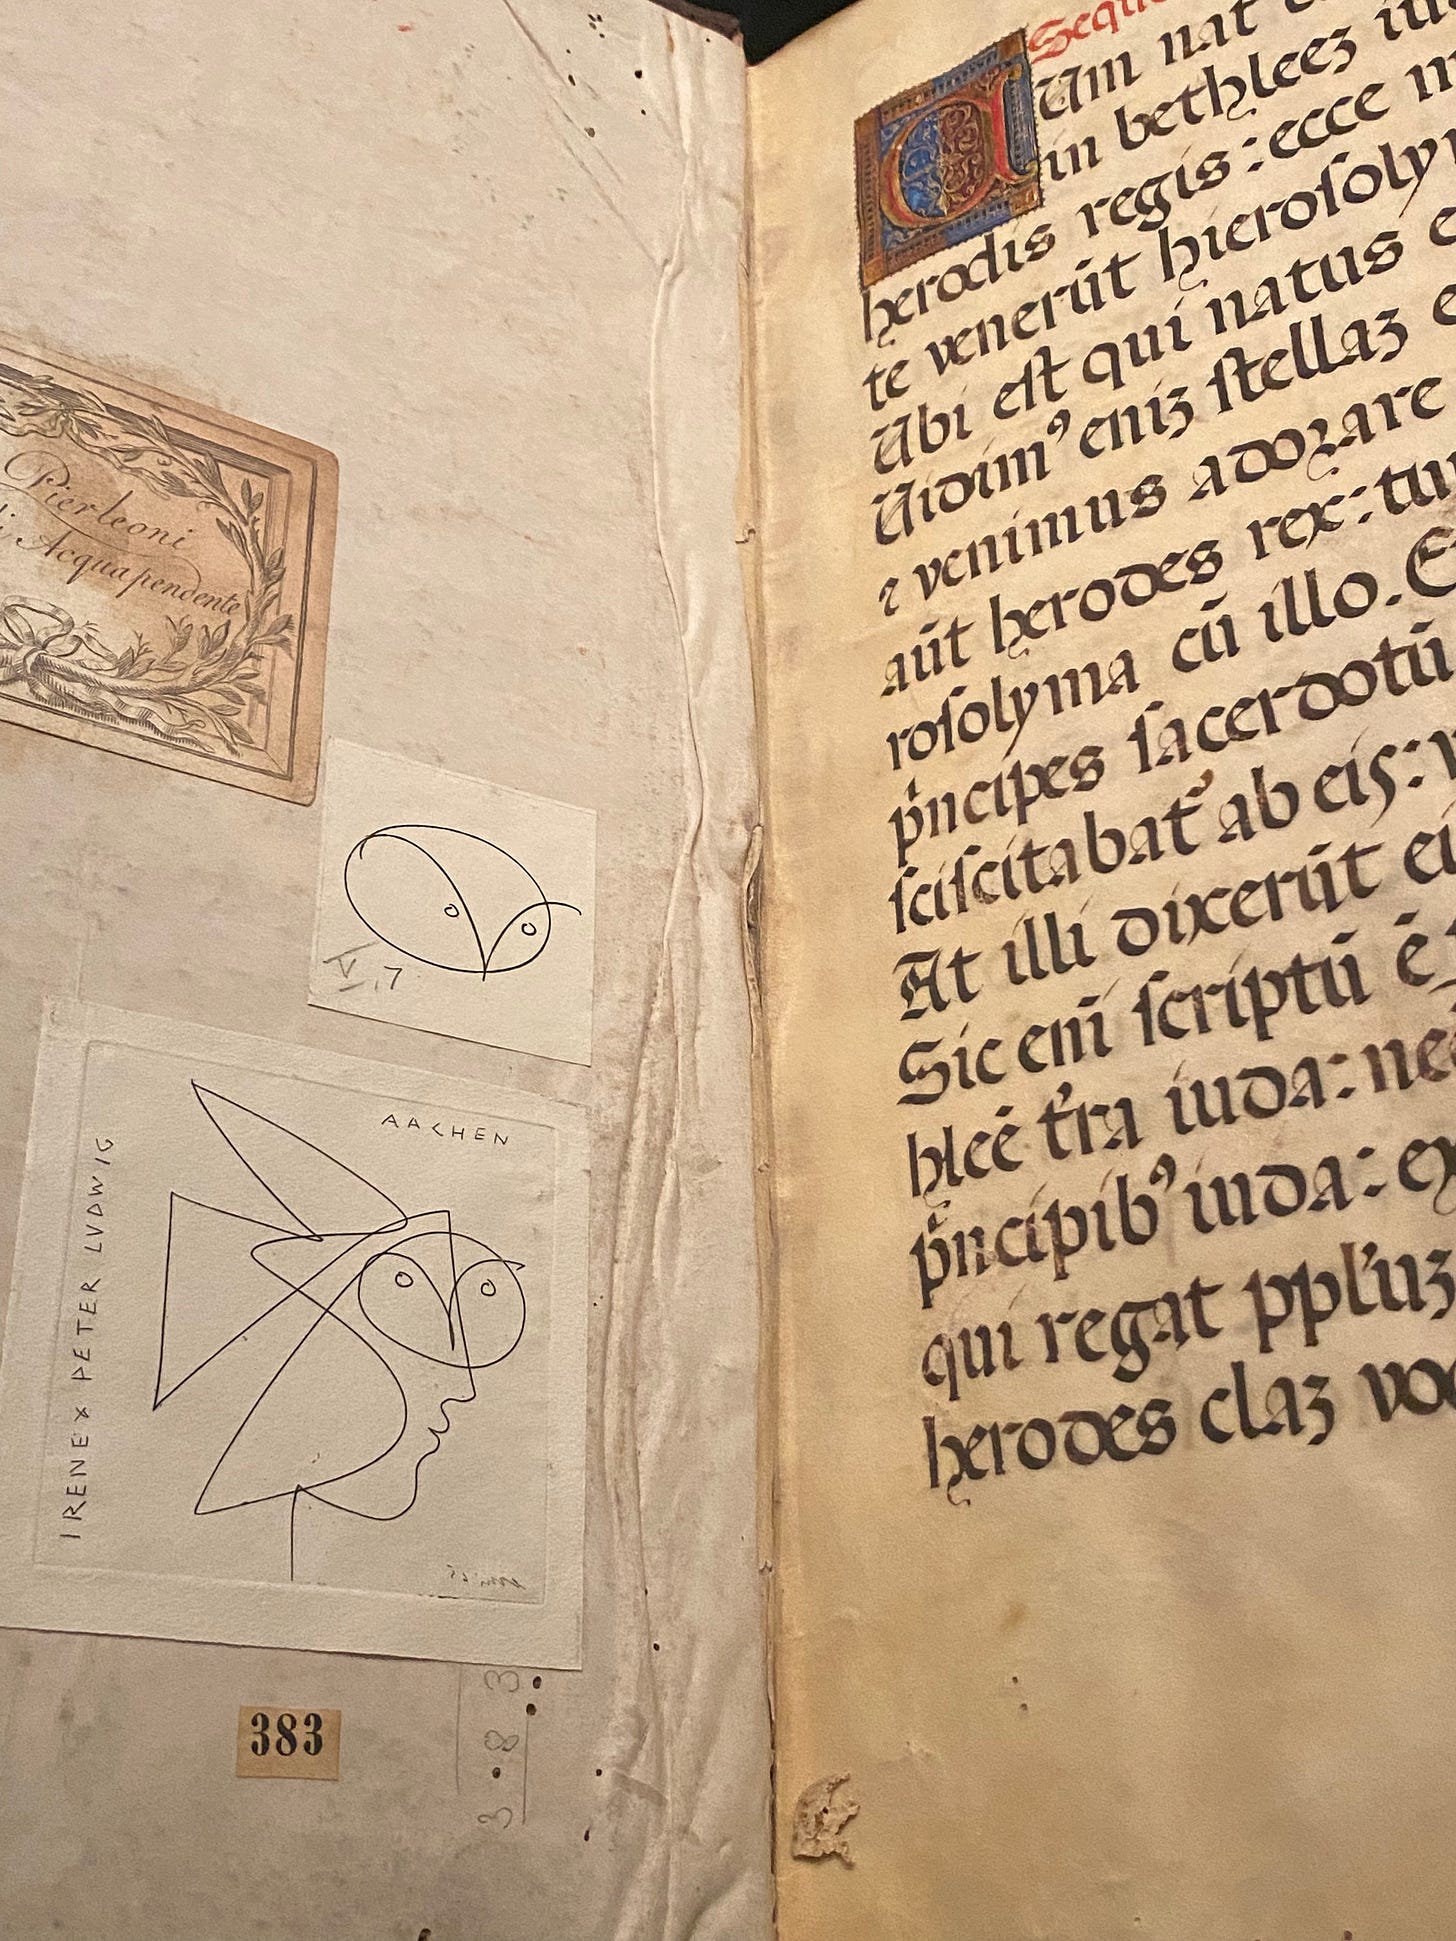 Pierleoni
di Acquapendente
V,7
AACHEN
IRENE × PETER LVDWIG
383
3.83
Seque
Um nat
in bethleez
herodis regis: ecce
te venerūt hieroſoly
Ubi eſt qui natus
Uidimꝰ eniz ſtellaz
e venimus adorare
aūt herodes rex: tur
roſolyma cū illo. E
pͥncipes ſacerdotū
ſciſcitabat᷑ ab eis:
At illi dixerūt ei
Sic eni ſcriptū ē
hleē tr̄a iuda: ne
pͥncipibꝰ iuda: ex
qui regat ppl'uz
herodes claz voc